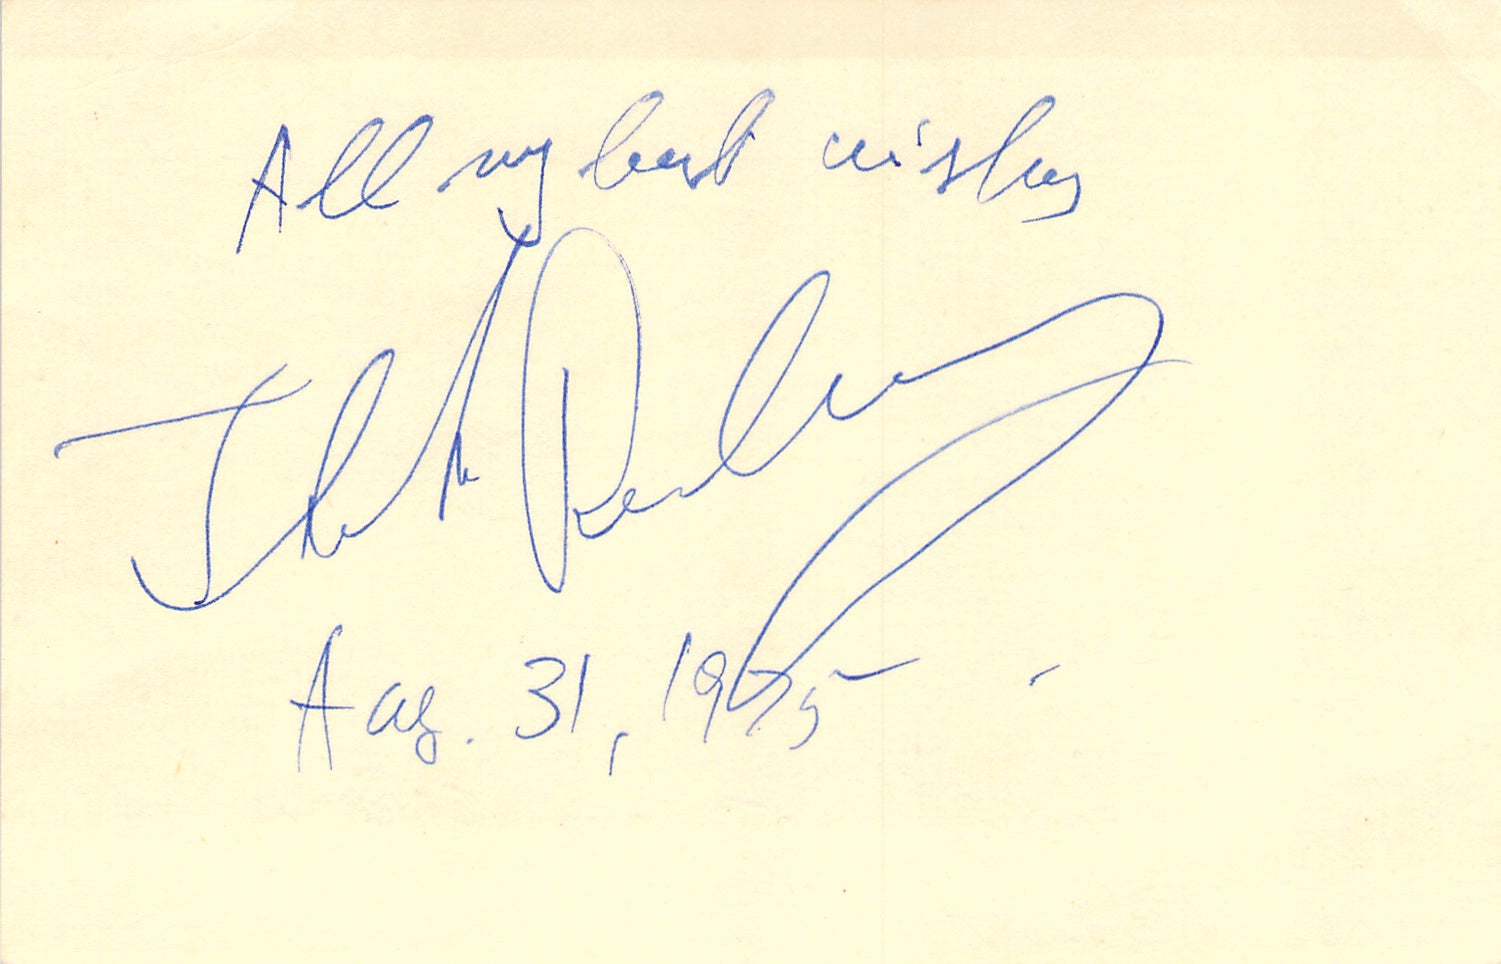 All my best wishes
Aug. 31, 1975